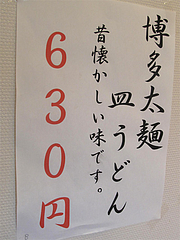 博多太麺
皿うどん
昔懐かしい味です。
630円